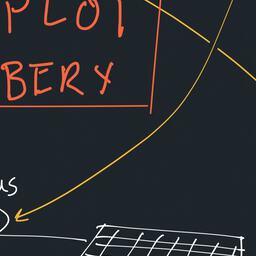 PLOT
BERY
us